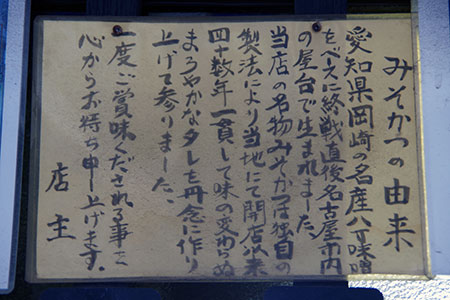 みそかつの由来
愛知県岡崎の名産八丁味噌
をベースに終戦直後名古屋市内
の屋台で生まれました
当店の名物みそかつは独自の
製法により当地にて開店以来
四十数年一貫して味の変わらぬ
まろやかなタレを丹念に作り
上げて参りました、
一度ご賞味くだされる事を
心からお待ち申し上げます。
店主